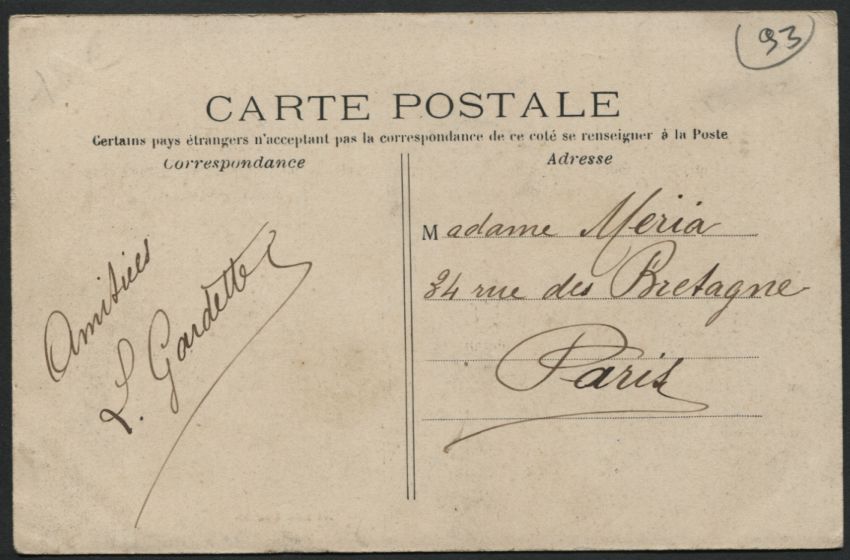 93
CARTE POSTALE
Certains pays étrangers n'acceptant pas la correspondance de ce coté se renseigner à la Poste
Correspondance
Adresse
Amitiés
L. Gardette
Madame Meria
34 rue des Bretagne
Paris